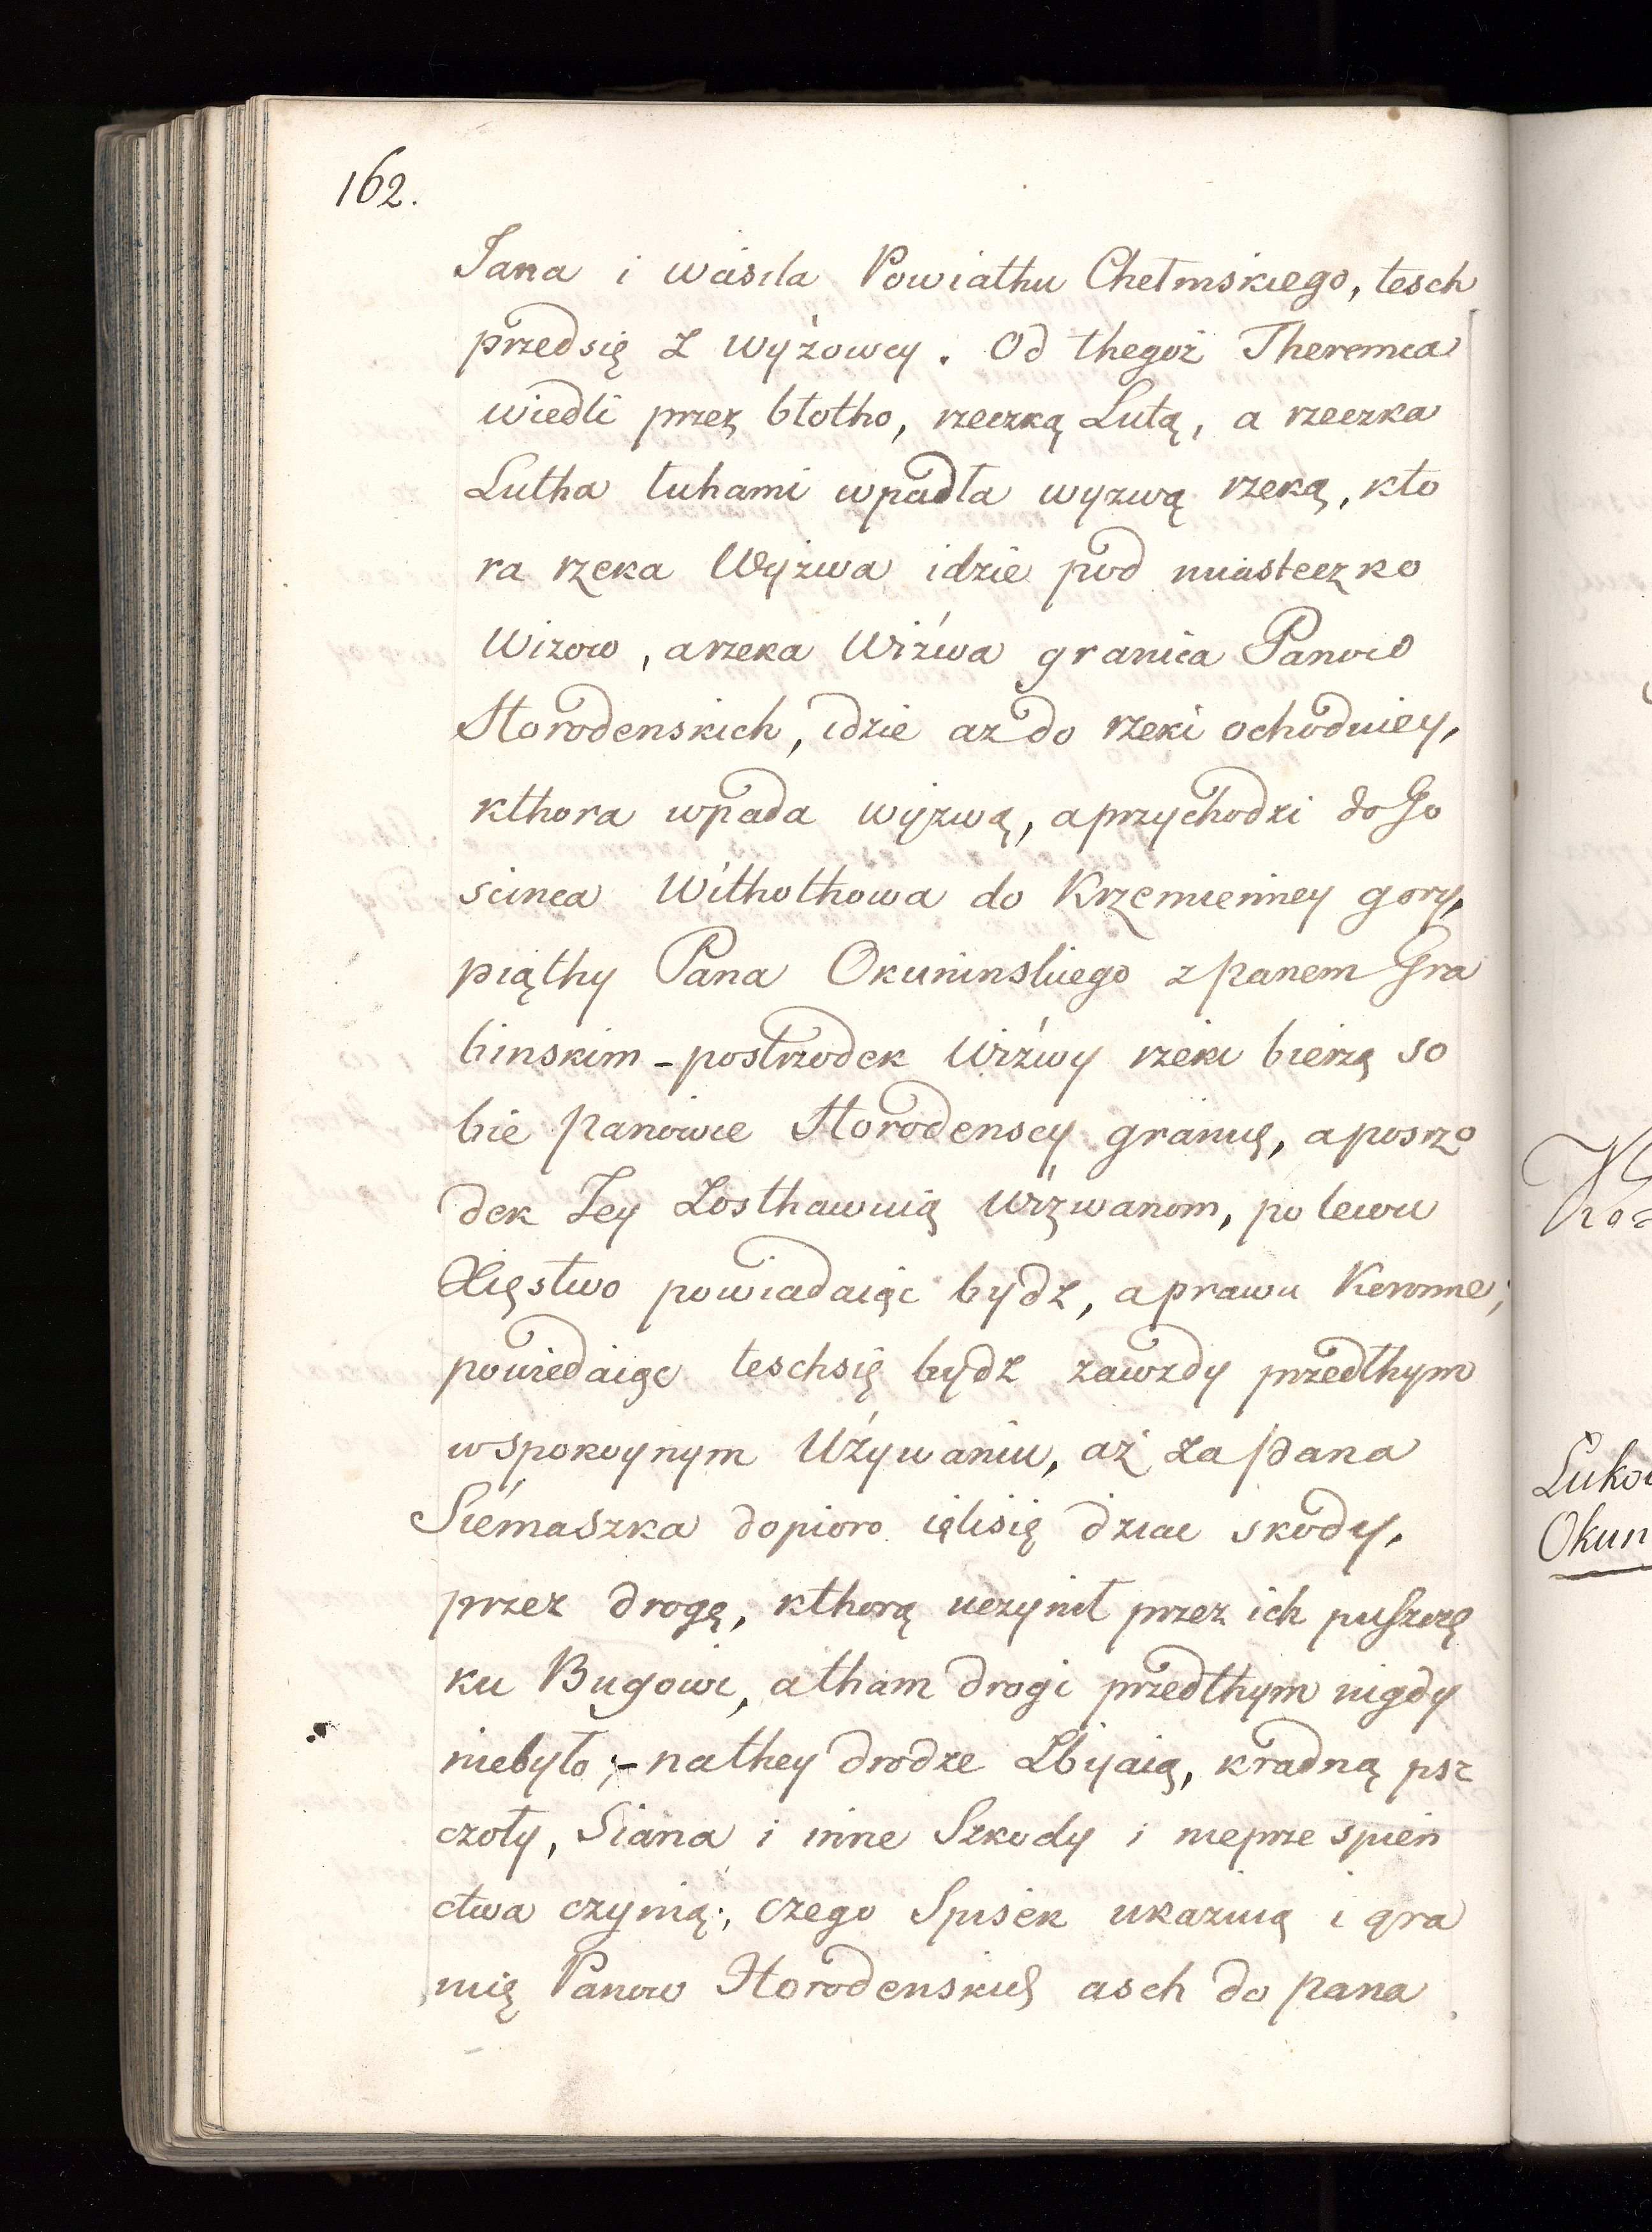 162.
Jana i wasila Powiathu Chełmskiego, tesch
przedsię z wyżowcy. Od thegoż Theremca
wiedli przez błotho, rzeczką Lutą, a rzeczka
Lutha łuhami wpadła wyzwą rzeką, kto
ra rzeka Wyżwa idzie pod miasteczko
Wizow, arzeka Wiźwa granica Panow
Horodenskich, idzie az do rzeki ochodniey,
kthora wpada wyzwą, aprzychodzi do Go
scinca Withołthowa do Krzemienney gory,
piąthy Pana Okuninskiego z panem Gra
binskim - postrzodek Wiźwy rzeki bierzą so
bie Panowie Horodenscy granicę, aposrzo
dek Jey Zosthawuią Wizwanom, po lewu
Xięstwo powiadaiąc bydz, aprawu Koronne;
powiedaiąc teschsię bydz zawzdy przedthym
wspokoynym Używaniu, aż za pana
Siemaszka dopioro ięlisię dziac skody,
przez drogę, kthorą uczynił przez ich puszczę
ku Bugowi, atham drogi przedthym nigdy
niebyło; - nathey drodze Zbijaią, kradną psz
czoły, Siana i inne Szkody i nieprzespień
ctwa czynią; czego Spisek ukazuią i gra
nię Panow Horodenskich asch do pana
Lukow
Okun